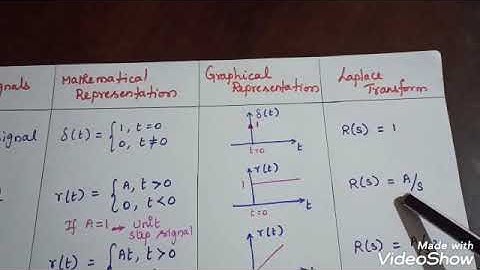 gnals
Mathematical
Representation
Graphical
Representation
Laplace
Transform
signal
δ(t) = { 1, t=0
0, t≠0
δ(t)
1
t=0
t
R(s) = 1
r(t) = { A, t>0
0, t<0
If A=1 → Unit
step signal
r(t)
1
t=0
t
R(s) = A/s
r(t) = { At, t>0
r(t)
R(s) =
Made with
VideoShow